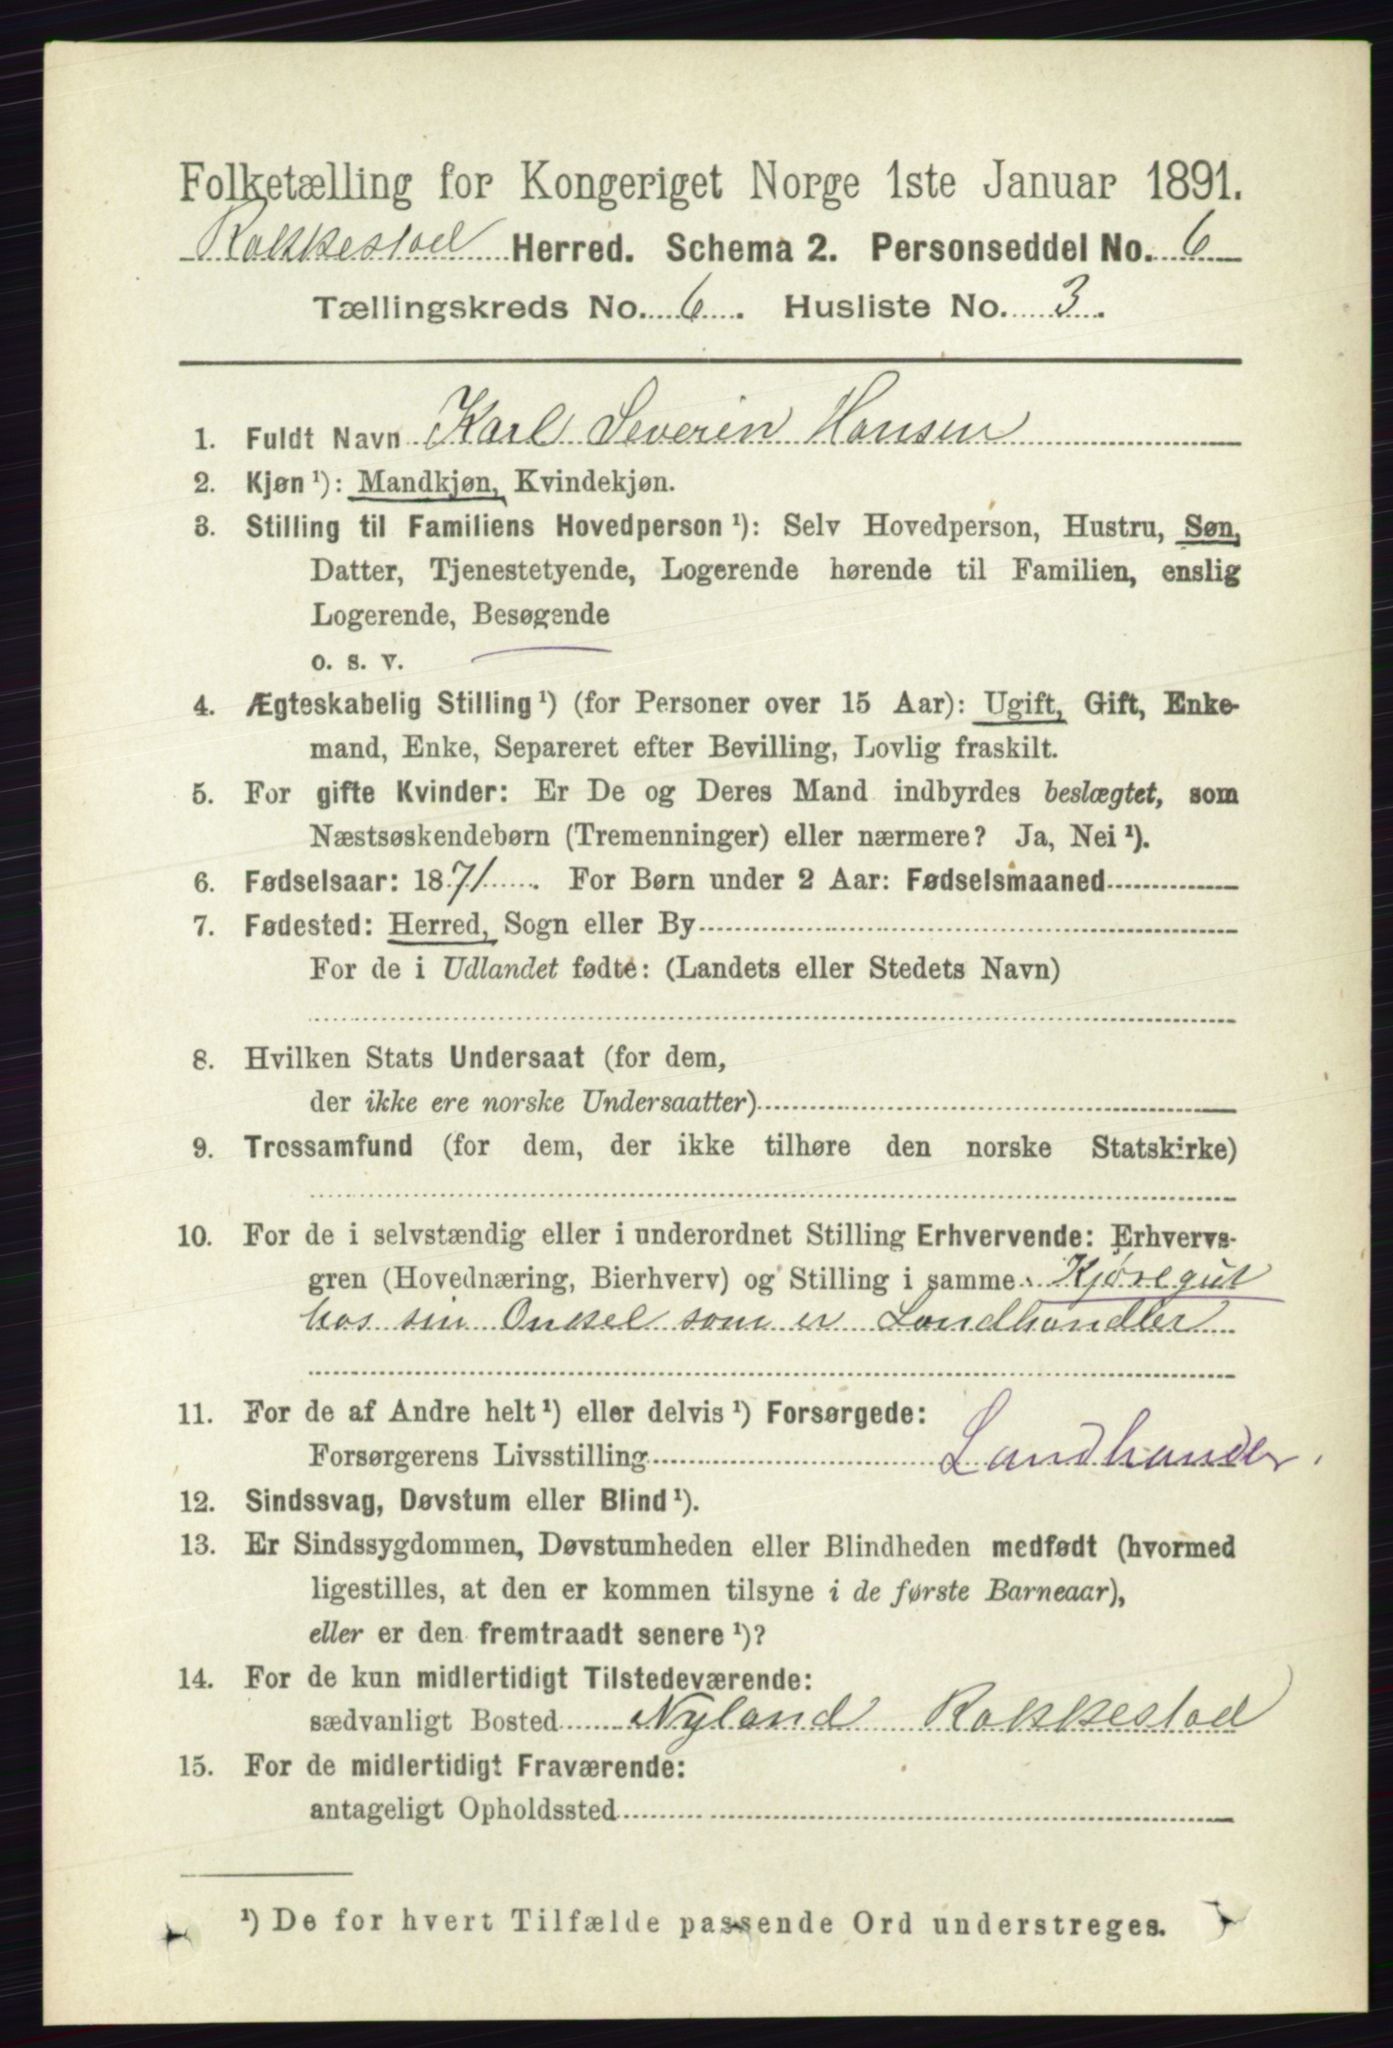 Folketælling for Kongeriget Norge 1ste Januar 1891.
Rakkestad Herred. Schema 2. Personseddel No. 6
Tællingskreds No. 6. Husliste No. 3.
1. Fuldt Navn Karl Severin Hansen
2. Kjøn ¹): Mandkjøn, Kvindekjøn.
3. Stilling til Familiens Hovedperson ¹): Selv Hovedperson, Hustru, Søn,
Datter, Tjenestetyende, Logerende hørende til Familien, enslig
Logerende, Besøgende
o. s. v.
4. Ægteskabelig Stilling ¹) (for Personer over 15 Aar): Ugift, Gift, Enke-
mand, Enke, Separeret efter Bevilling, Lovlig fraskilt.
5. For gifte Kvinder: Er De og Deres Mand indbyrdes beslægtet, som
Næstsøskendebørn (Tremenninger) eller nærmere? Ja, Nei ¹).
6. Fødselsaar: 1871. For Børn under 2 Aar: Fødselsmaaned
7. Fødested: Herred, Sogn eller By
For de i Udlandet fødte: (Landets eller Stedets Navn)
8. Hvilken Stats Undersaat (for dem,
der ikke ere norske Undersaatter)
9. Trossamfund (for dem, der ikke tilhøre den norske Statskirke)
10. For de i selvstændig eller i underordnet Stilling Erhvervende: Erhvervs-
gren (Hovednæring, Bierhverv) og Stilling i samme Kjøregut
hos sin Onkel som er Landhandler
11. For de af Andre helt ¹) eller delvis ¹) Forsørgede:
Forsørgerens Livsstilling Landhander
12. Sindssvag, Døvstum eller Blind ¹).
13. Er Sindssygdommen, Døvstumheden eller Blindheden medfødt (hvormed
ligestilles, at den er kommen tilsyne i de første Barneaar),
eller er den fremtraadt senere ¹)?
14. For de kun midlertidigt Tilstedeværende:
sædvanligt Bosted Nyland Rakkestad
15. For de midlertidigt Fraværende:
antageligt Opholdssted
¹) De for hvert Tilfælde passende Ord understreges.